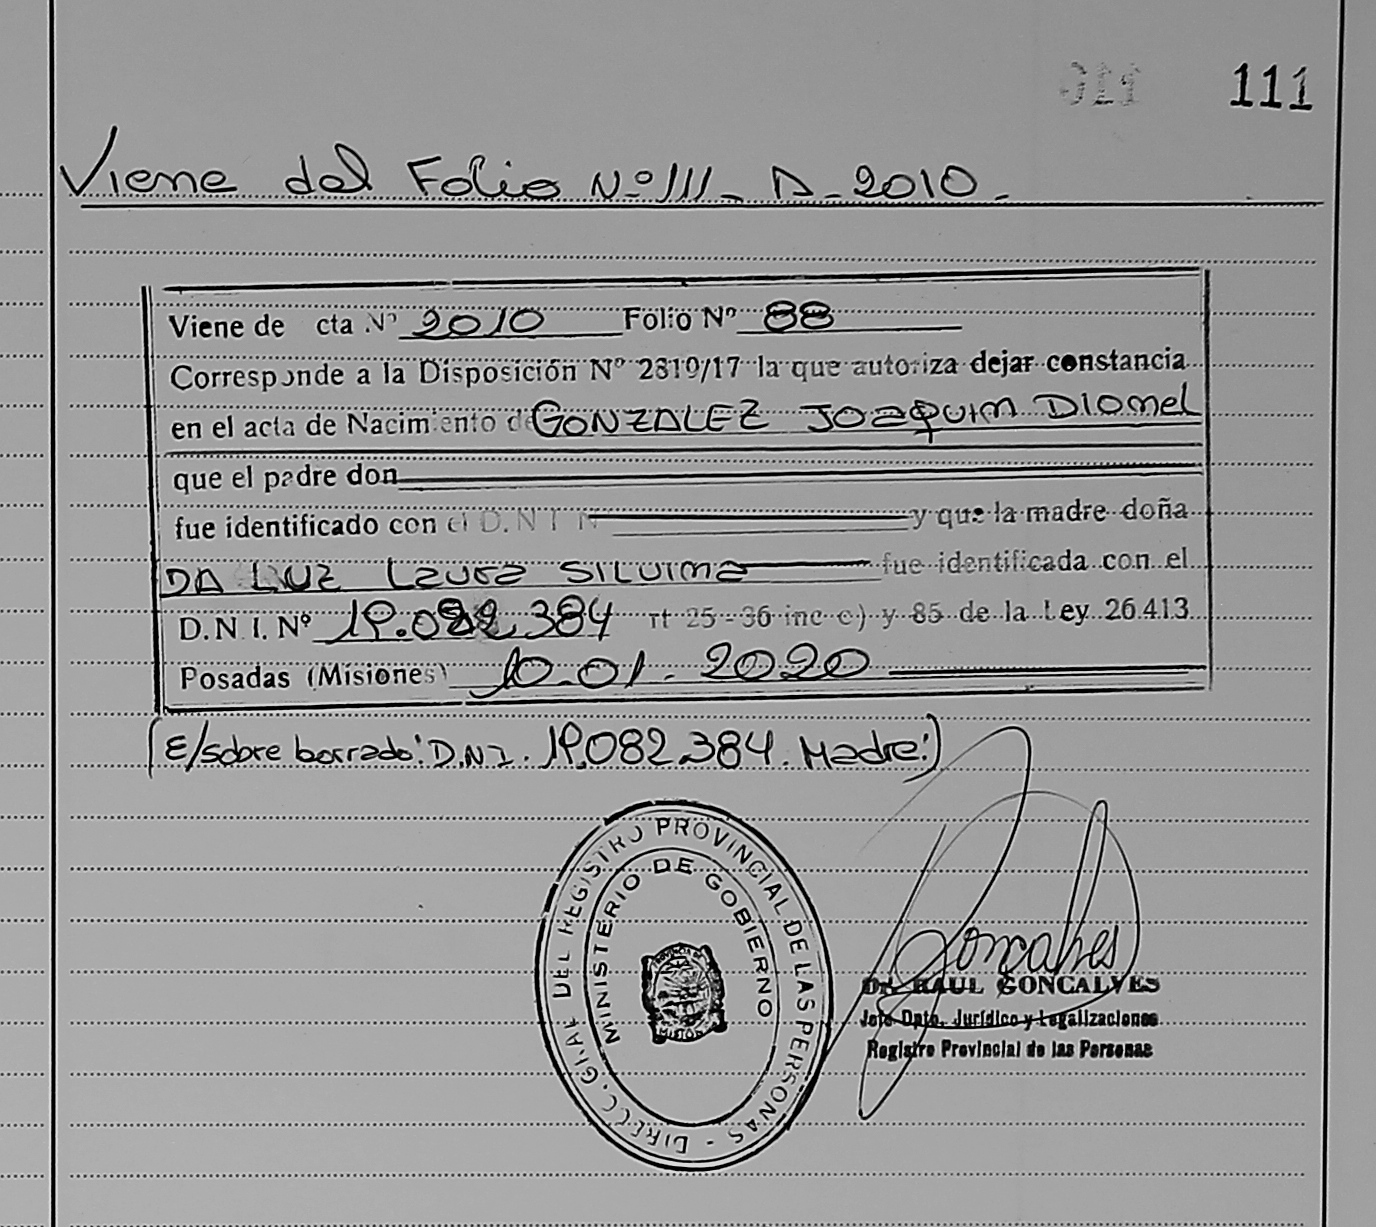 011 111
Viene del Folio Nº 111 - A - 2010 -
Viene de cta Nº 2010 Folio Nº 88
Corresponde a la Disposición Nº 2810/17 la que autoriza dejar constancia
en el acta de Nacimiento de GONZALEZ JOAQUIM DIONEL
que el padre don
fue identificado con el D.N I N y que la madre doña
DA LUZ Laura SILVINA fue identificada con el
D.N.I. Nº 19.082.384 rt 25 - 36 inc c) y 85 de la Ley 26.413
Posadas (Misiones) 10.01.2020
(E/sobre borrado: D.N.I. 19.082.384. Madre:)
DIRECC. GRAL DEL REGISTRO PROVINCIAL DE LAS PERSONAS -
MINISTERIO DE GOBIERNO
Goncalves
Dr. RAUL GONCALVES
Jefe Dpto. Jurídico y Legalizaciones
Registro Provincial de las Personas